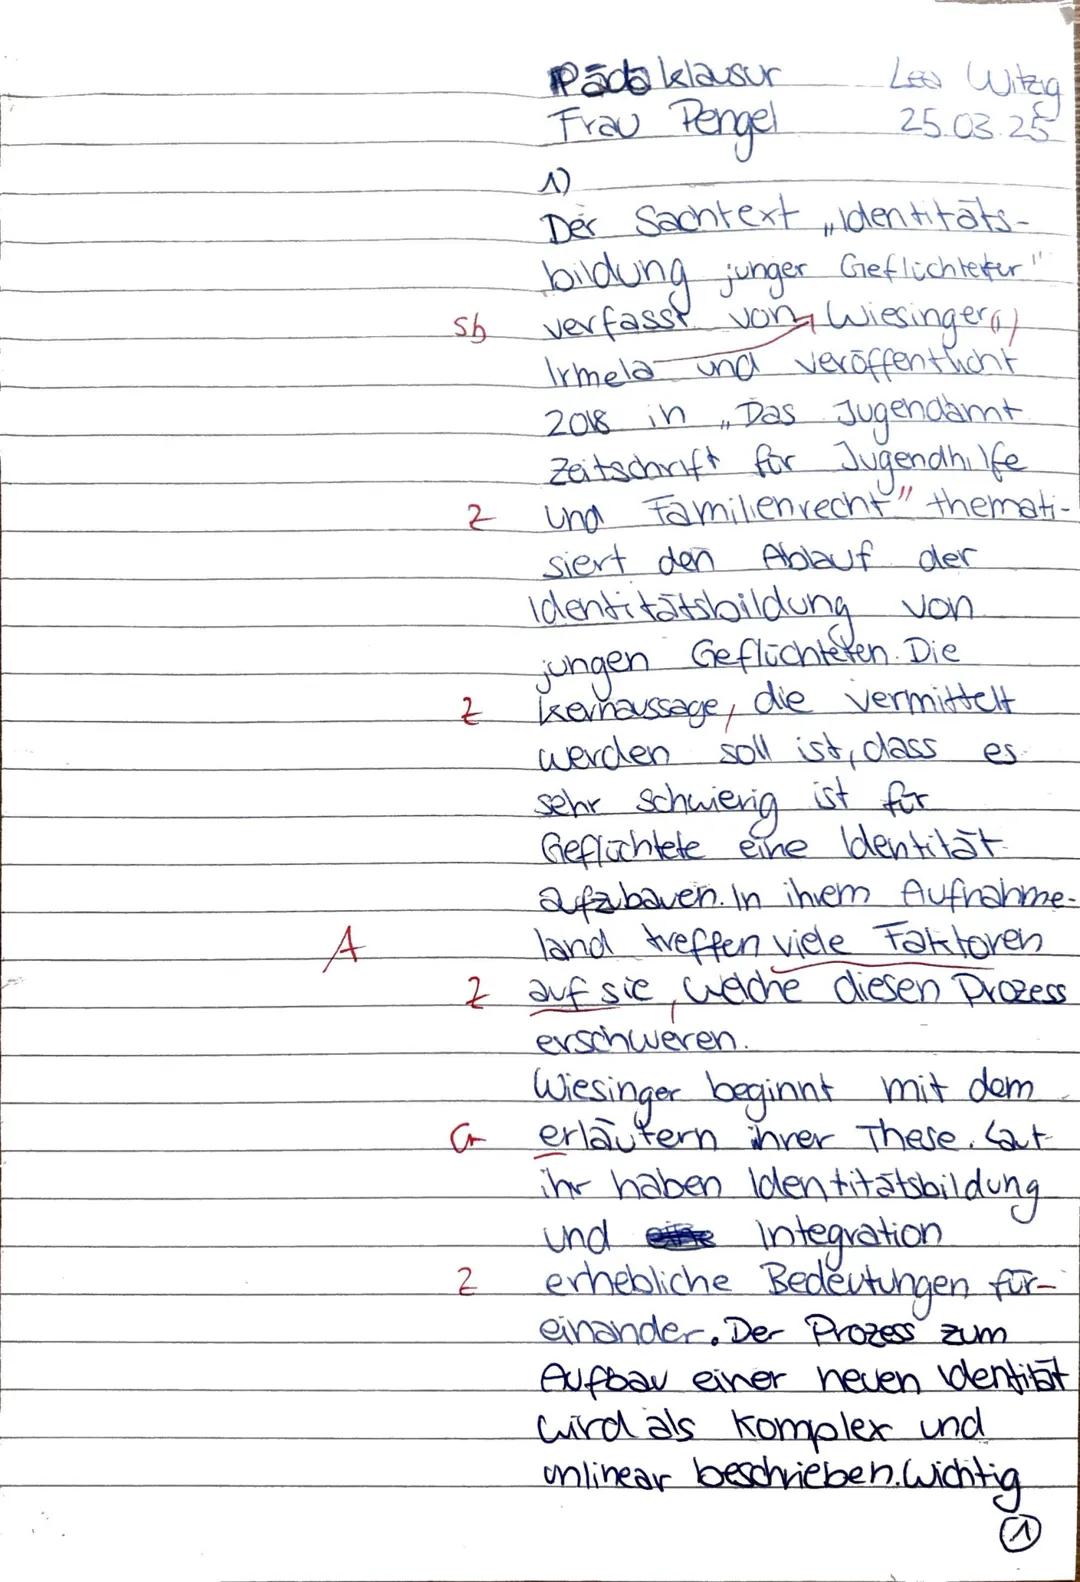 Päda klausur Lea Witzig
Frau Pengel 25.03.25
1)
Der Sachtext „Identitäts-
bildung junger Geflüchteter"
Sb verfasst von Wiesinger(,)
Irmela und veröffentlicht
2018 in „Das Jugendamt
Zeitschrift für Jugendhilfe
Z und Familienrecht" themati-
siert den Ablauf der
Identitätsbildung von
jungen Geflüchteten. Die
Z Kernaussage, die vermittelt
werden soll ist, dass es
sehr schwierig ist für
Geflüchtete eine Identität
aufzubauen. In ihrem Aufnahme-
A land treffen viele Faktoren
Z auf sie, welche diesen Prozess
erschweren.
Wiesinger beginnt mit dem
Gr erläutern ihrer These. Laut
ihr haben Identitätsbildung
und Integration
Z erhebliche Bedeutungen für-
einander. Der Prozess zum
Aufbau einer neuen Identität
wird als Komplex und
unlinear beschrieben. Wichtig
1